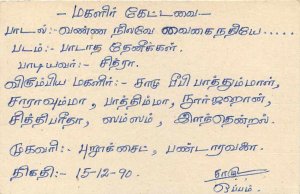 – மகளிர் கேட்டவை –
பாடல்:- வண்ண நிலவே வைகை நதியே.....
படம்:- பாடாத தேனீக்கள்.
பாடியவர்:- சித்ரா.
விரும்பிய மகளிர்:- சாடு பீபி பாத்தும்மாள்,
சாராவும்மா, பாத்திம்மா, நூர்ஜஹான்,
சித்திபரீதா, ஸம்ஸம்,
முகவரி:- பண்டாரவளை.
திகதி:- 15-12-90.
ஒப்பம்.